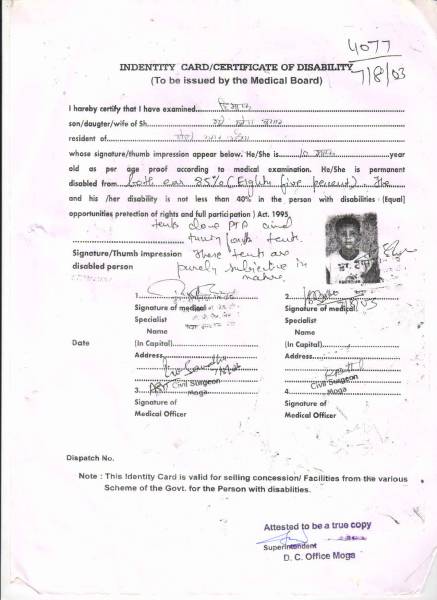 4077
7/8/03
INDENTITY CARD/CERTIFICATE OF DISABILITY
(To be issued by the Medical Board)
I hereby certify that I have examined
son/daugter/wife of Sh.
resident of
whose signature/thumb impression appear below. He/She is 10 year
old as per age proof according to medical examination. He/She is permanent
disabled from both ear 85% (Eighty five percent). He
and his /her disability is not less than 40% in the person with disabilities (Equal)
opportunities pretection of rights and full participation ) Act. 1995,
tests done PTA and
tuning fork tests.
Signature/Thumb impression These tests are
disabled person purely subjective in
nature.
1. 2.
Signature of medical Signature of medical
Specialist Specialist
Name Name
Date (In Capital) (In Capital)
Address Address
3. Civil Surgeon 4. Civil Surgeon
Moga Moga
Signature of Signature of
Medical Officer Medical Officer
Dispatch No.
Note : This Identity Card is valid for seiling concession/ Facilities from the various
Scheme of the Govt. for the Person with disablities.
Attested to be a true copy
Superintendent
D. C. Office Moga